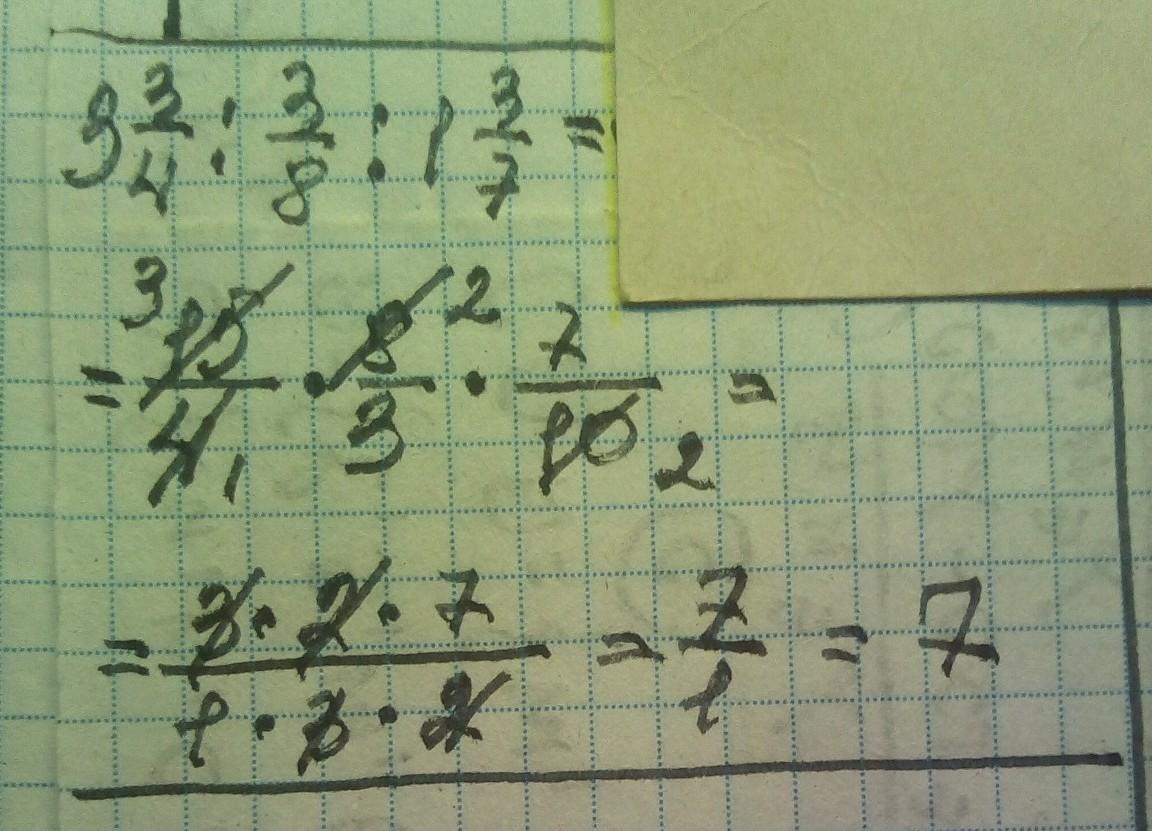 3 3/4 : 3/8 : 1 3/7 =
= 15/4 · 8/3 · 7/10 = 3 1 2 2
= 3·2·7 / 1·3·2 = 7/1 = 7